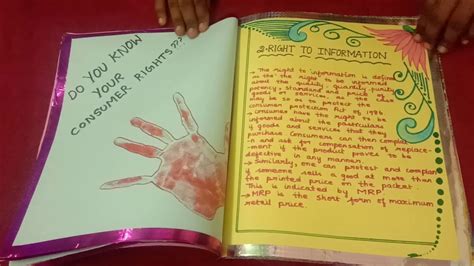 DO YOU KNOW
YOUR
CONSUMER RIGHTS???
2. RIGHT TO INFORMATION
→ The right to information is define
as the the right to be informed
about the quality, quantity, purity
potency, standard and price of
goods or services as the case
may be so as to protect the
consumer protection Act of 1986
→ Consumers have the right to be
informed about the particulars
of goods and services that they
purchase consumers can then complain
n and ask for compensation of replace-
ment if the product proves to be
defective in any manner.
→ Similarly, one can protest and complain
if someone sells a good at more than
the printed price on the packet.
This is indicated by MRP
→ MRP is the short form of maximum
retail price.